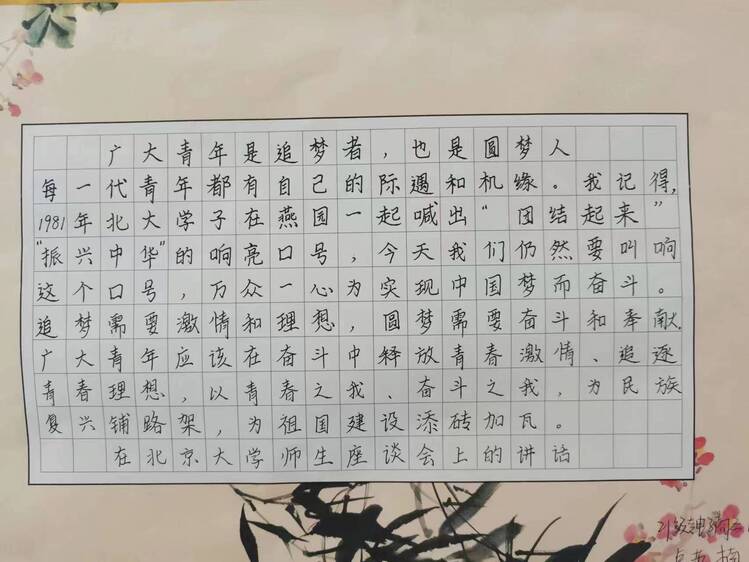 广大青年是追梦者，也是圆梦人
每一代青年都有自己的际遇和机缘。我记得，
1981年北大学子在燕园一起喊出“团结起来”
“振兴中华”的响亮口号，今天我们仍然要叫响
这个口号，万众一心为实现中国梦而奋斗。
追梦需要激情和理想，圆梦需要奋斗和奉献，
广大青年应该在奋斗中释放青春激情、追逐
青春理想，以青春之我、奋斗之我，为民族
复兴铺路架，为祖国建设添砖加瓦。
在北京大学师生座谈会上的讲话
21级